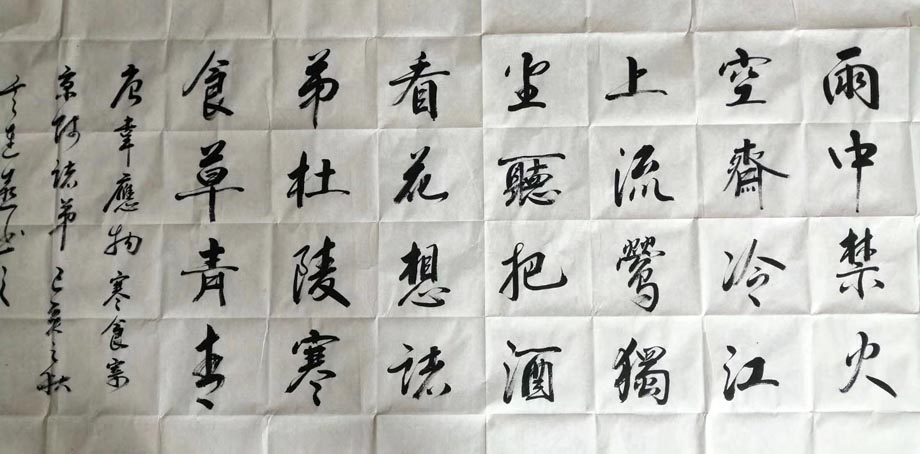 雨中禁火
空齋冷江
上流鶯獨
坐聽把酒
看花想諸
弟杜陵寒
食草青青
唐韋應物寒食寄
京師諸弟己亥之秋